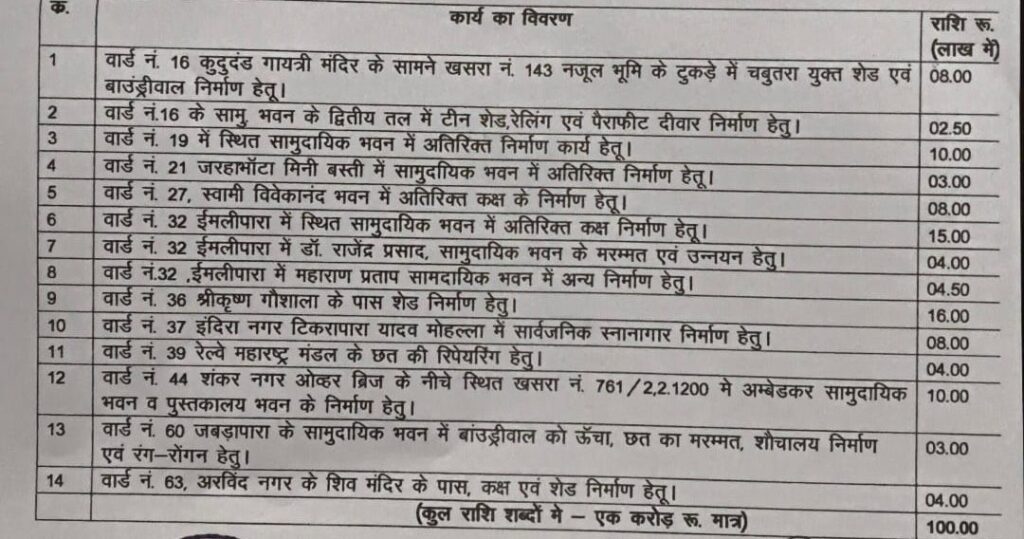 क. कार्य का विवरण राशि रू.
(लाख में)
1 वार्ड नं. 16 कुदुदंड गायत्री मंदिर के सामने खसरा नं. 143 नजूल भूमि के टुकड़े में चबुतरा युक्त शेड एवं 08.00
बाउंड्रीवाल निर्माण हेतू।
2 वार्ड नं.16 के सामु. भवन के द्वितीय तल में टीन शेड,रेलिंग एवं पैराफीट दीवार निर्माण हेतु। 02.50
3 वार्ड नं. 19 में स्थित सामुदायिक भवन में अतिरिक्त निर्माण कार्य हेतू। 10.00
4 वार्ड नं. 21 जरहाभॉटा मिनी बस्ती में सामुदाियक भवन में अतिरिक्त निर्माण हेतू। 03.00
5 वार्ड नं. 27, स्वामी विवेकानंद भवन में अतिरिक्त कक्ष के निर्माण हेतू। 08.00
6 वार्ड नं. 32 ईमलीपारा में स्थित सामुदायिक भवन में अतिरिक्त कक्ष निर्माण हेतू। 15.00
7 वार्ड नं. 32 ईमलीपारा में डॉ. राजेंद्र प्रसाद, सामुदायिक भवन के मरम्मत एवं उन्नयन हेतु। 04.00
8 वार्ड नं.32 ,ईमलीपारा में महाराण प्रताप सामदायिक भवन में अन्य निर्माण हेतु। 04.50
9 वार्ड नं. 36 श्रीकृष्ण गौशाला के पास शेड निर्माण हेतु। 16.00
10 वार्ड नं. 37 इंदिरा नगर टिकरापारा यादव मोहल्ला में सार्वजनिक स्नानागार निर्माण हेतु। 08.00
11 वार्ड नं. 39 रेल्वे महाराष्ट्र मंडल के छत की रिपेयरिंग हेतु। 04.00
12 वार्ड नं. 44 शंकर नगर ओव्हर ब्रिज के नीचे स्थित खसरा नं. 761/2,2.1200 मे अम्बेडकर सामुदायिक 10.00
भवन व पुस्तकालय भवन के निर्माण हेतु।
13 वार्ड नं. 60 जबड़ापारा के सामुदायिक भवन में बांउड्रीवाल को ऊँचा, छत का मरम्मत, शौचालय निर्माण 03.00
एवं रंग–रोंगन हेतु।
14 वार्ड नं. 63, अरविंद नगर के शिव मंदिर के पास, कक्ष एवं शेड निर्माण हेतू। 04.00
(कुल राशि शब्दों मे – एक करोड़ रू. मात्र) 100.00